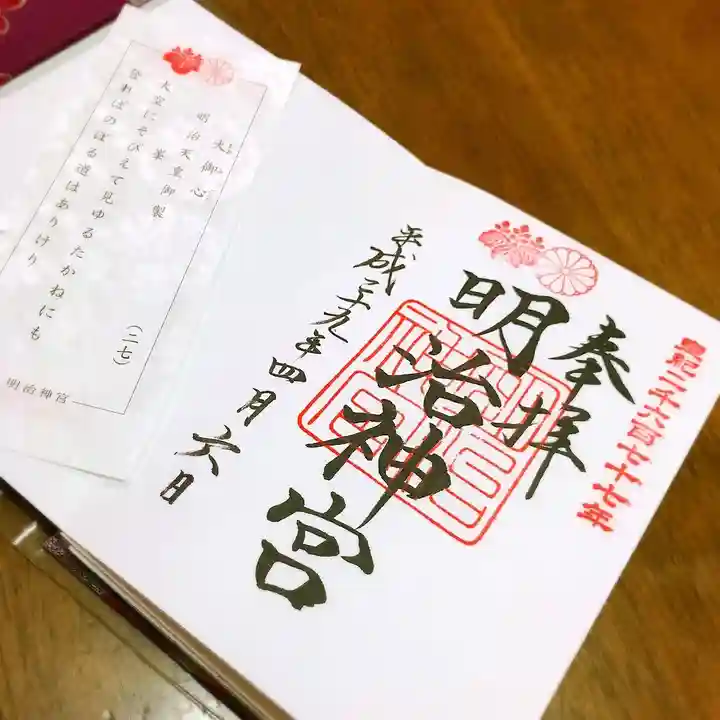 皇紀二千六百七十七年
奉拝
明治神宮
平成二十九年四月六日
大御心
明治天皇御製
峯
大空にそびえて見ゆるたかねにも
登ればのぼる道はありけり
(二七)
明治神宮